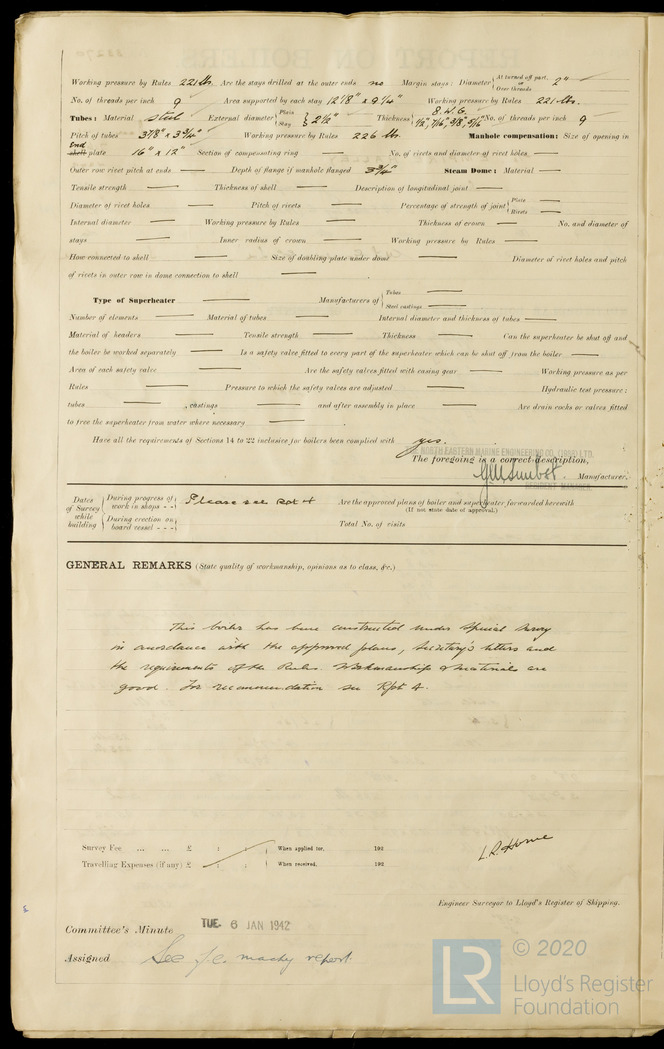 Working pressure by Rules 221 lb. Are the stays drilled at the outer ends no Margin stays: Diameter { At turned off part, or Over threads 2"
No. of threads per inch 9 Area supported by each stay 12 1/8" x 9 1/4" Working pressure by Rules 221 lb.
Tubes: Material steel External diameter { Plain Stay } 2 1/2" Thickness { 8 W.G. 1/2", 7/16", 3/8", 5/16" No. of threads per inch 9
Pitch of tubes 3 7/8" x 3 3/4" Working pressure by Rules 226 lb Manhole compensation: Size of opening in
End
shell plate 16" x 12" Section of compensating ring — No. of rivets and diameter of rivet holes —
Outer row rivet pitch at ends — Depth of flange if manhole flanged 3 3/4" Steam Dome: Material —
Tensile strength — Thickness of shell — Description of longitudinal joint —
Diameter of rivet holes — Pitch of rivets — Percentage of strength of joint { Plate — Rivets —
Internal diameter — Working pressure by Rules — Thickness of crown — No. and diameter of
stays — Inner radius of crown — Working pressure by Rules —
How connected to shell — Size of doubling plate under dome — Diameter of rivet holes and pitch
of rivets in outer row in dome connection to shell —
Type of Superheater — Manufacturers of { Tubes — Steel castings —
Number of elements — Material of tubes — Internal diameter and thickness of tubes —
Material of headers — Tensile strength — Thickness — Can the superheater be shut off and
the boiler be worked separately — Is a safety valve fitted to every part of the superheater which can be shut off from the boiler —
Area of each safety valve — Are the safety valves fitted with easing gear — Working pressure as per
Rules — Pressure to which the safety valves are adjusted — Hydraulic test pressure:
tubes —, castings — and after assembly in place — Are drain cocks or valves fitted
to free the superheater from water where necessary —
Have all the requirements of Sections 14 to 22 inclusive for boilers been complied with yes.
NORTH EASTERN MARINE ENGINEERING CO. (1938) LTD.
The foregoing is a correct description,
Manufacturer.
Dates of Survey while building { During progress of work in shops - - } Please see Rpt 4 Are the approved plans of boiler and superheater forwarded herewith
(If not state date of approval.)
{ During erection on board vessel - - - } Total No. of visits
GENERAL REMARKS (State quality of workmanship, opinions as to class, &c.)
This boiler has been constructed under Special Survey
in accordance with the approved plans, Secretary's letters and
the requirements of the Rules. Workmanship & materials are
good. For recommendation see Rpt 4.
Survey Fee ... ... £ : : } When applied for, 192
Travelling Expenses (if any) £ : : } When received, 192
L.R. Horne
Engineer Surveyor to Lloyd's Register of Shipping.
Committee's Minute TUE. 6 JAN 1942
Assigned See F.E. machy report.
LR © 2020
Lloyd's Register
Foundation